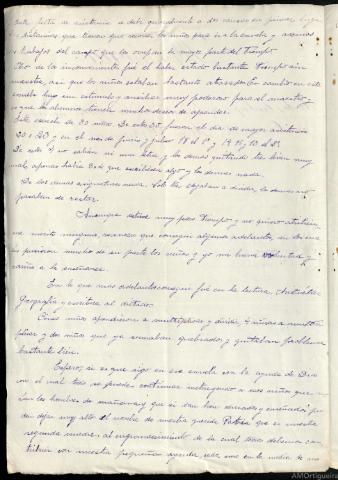 esta falta de asistencia se debe generalmente a dos causas: en primer lugar
las distancias que tienen que recorrer los niños para ir a la escuela y además
los trabajos del campo que les ocupan la mayor parte del tiempo.
Otro de los inconvenientes fué el haber estado bastante tiempo sin
maestro, así que los niños estaban bastante atrasados. En cambio en esta
escuela hay un estímulo y auxiliar muy poderoso para el maestro y
es que los alumnos tienen mucho deseo de aprender.
Esta escuela de 30 niños. De estos 30 fueron el día de mayor asistencia
30 y 20 y en el mes de junio y julio 18 el 1º y 14, 15, y 13 el 2º.
De estos no sabían ni una letra y los demás quitando leían muy
mal, apenas había 3 o 4 que escribiesen algo y los demás nada.
De las demás asignaturas nada. Solo llegaban a dividir, los demás no
pasaban de restar.
Aunque estuve muy poco tiempo y no quiero atribuirme
mérito ninguno, reconozco que conseguí algunos adelantos, en los que
pusieron mucho de su parte los niños y yo mi buena voluntad y
cariño a la enseñanza.
En lo que más adelantos conseguí fué en la lectura, Aritmética
Geografía y escritura al dictado.
niños aprendieron a multiplicar y dividir, 4 niños a multi-
plicar y dos niños que ya sumaban quebrados y quitaban problemas
bastante bien.
Espero, si es que sigo en esa escuela con la ayuda de Dios
con el cual todo se puede, continuar instruyendo a esos niños que
serán los hombres de mañana y que si son bien educados y enseñados pue-
den dejar muy alto el nombre de nuestra grande Patria que es nuestra
segunda madre, al engrandecimiento de la cual todos debemos con-
tribuir con nuestra pequeña ayuda, cada uno en la medida de sus
AMOrtigueira